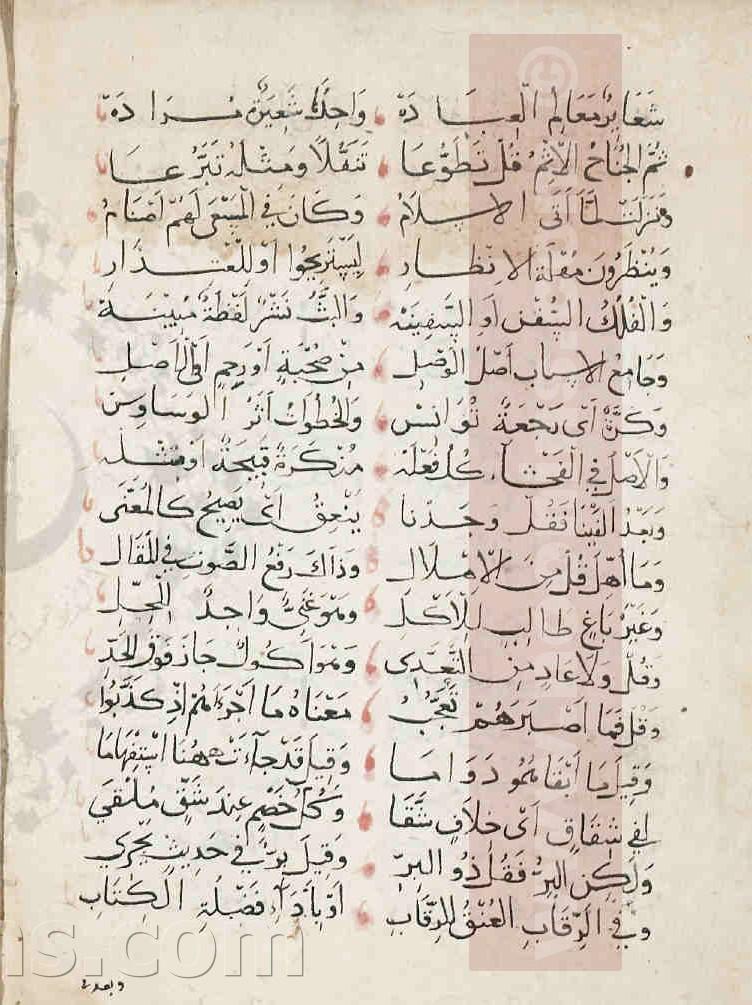 شَعَايِرٌ مَعَالِمُ الْعِبَادَهْ وَاحِدُهَا شَعِيرَةٌ مُرَادَهْ
ثُمَّ الْجُنَاحُ الْإِثْمُ قُلْ تَطَوُّعَا تَنَفُّلًا وَمِثْلُهُ تَبَرُّعَا
نَزَلَتْ لَمَّا أَتَى الْإِسْلَامُ وَكَانَ فِي الْمَسْعَى لَهُمْ أَصْنَامُ
وَيُنْظَرُونَ مُهْلَةُ الْإِنْظَارِ لِيَسْتَرِيحُوا أَوْ لِلِاعْتِذَارِ
وَالْفُلْكُ السُّفْنُ أَوِ السَّفِينَهْ وَالْبَثُّ نَشْرٌ لَفْظَةٌ مُبِينَهْ
وَجَامِعُ الْأَسْبَابِ أَصْلُ الْوَصْلِ مِنْ صُحْبَةٍ أَوْ رَحِمٍ أَوْ أَصْلِ
وَكَرَّةٌ أَيْ رَجْعَةٌ تُوَانِسُ وَالْخُطُوَاتُ أَثَرُ الْوَسَاوِسِ
وَالْأَصْلُ فِي الْفَحْشَاءِ كُلُّ فَعْلَهْ مُنْكَرَةٌ قَبِيحَةٌ أَوْ مِثْلَهْ
وَبَعْدُ أَلْفَيْنَا فَقُلْ وَجَدْنَا يَنْعِقُ أَيْ يَصِيحُ كَالْمُعَنَّى
وَمَا أُهِلَّ قُلْ مِنَ الْإِهْلَالِ وَذَاكَ رَفْعُ الصَّوْتِ فِي الْمَقَالِ
وَغَيْرُ بَاغٍ طَالِبٍ لِلْأَكْلِ وَهْوَ غَنِيٌّ وَاجِدُ الْمَحَلِّ
وَقُلْ وَلَا عَادٍ مِنَ التَّعَدِّي وَهْوَ أَكُولٌ جَازَ فَوْقَ الْحَدِّ
وَقُلْ فَمَا أَصْبَرَهُمْ تَعَجُّبُ مَعْنَاهُ مَا أَجْرَأَهُمْ إِذْ كَذَّبُوا
وَقِيلَ مَا أَبْقَاهُمُو دَوَامَا وَقِيلَ قَدْ جَاءَتْ هَهُنَا اسْتِفْهَامَا
لَفِي شِقَاقٍ أَيْ خِلَافٍ شَقَّا وَكُلُّ خَصْمٍ عِنْدَ شَقٍّ مُلْقَى
وَلَكِنِ الْبِرُّ فَقُلْ ذُو الْبِرِّ وَقِيلَ بِرٌّ فِي حَدِيثٍ يَجْرِي
وَفِي الرِّقَابِ الْعِتْقُ لِلرِّقَابِ أَوْ بِأَدَاءِ فَضْلَةِ الْكِتَابِ
ns.com